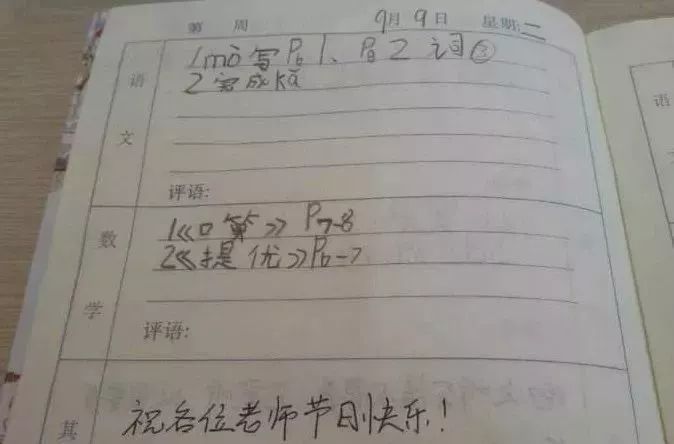 第 周 9月9日 星期:二
语文
1mò写P6 1、P8 2词③
2完成kǎ
评语:
数学
1《口算》P7-8
2《提优》P6-7
评语:
其
祝各位老师节刚快乐!
语